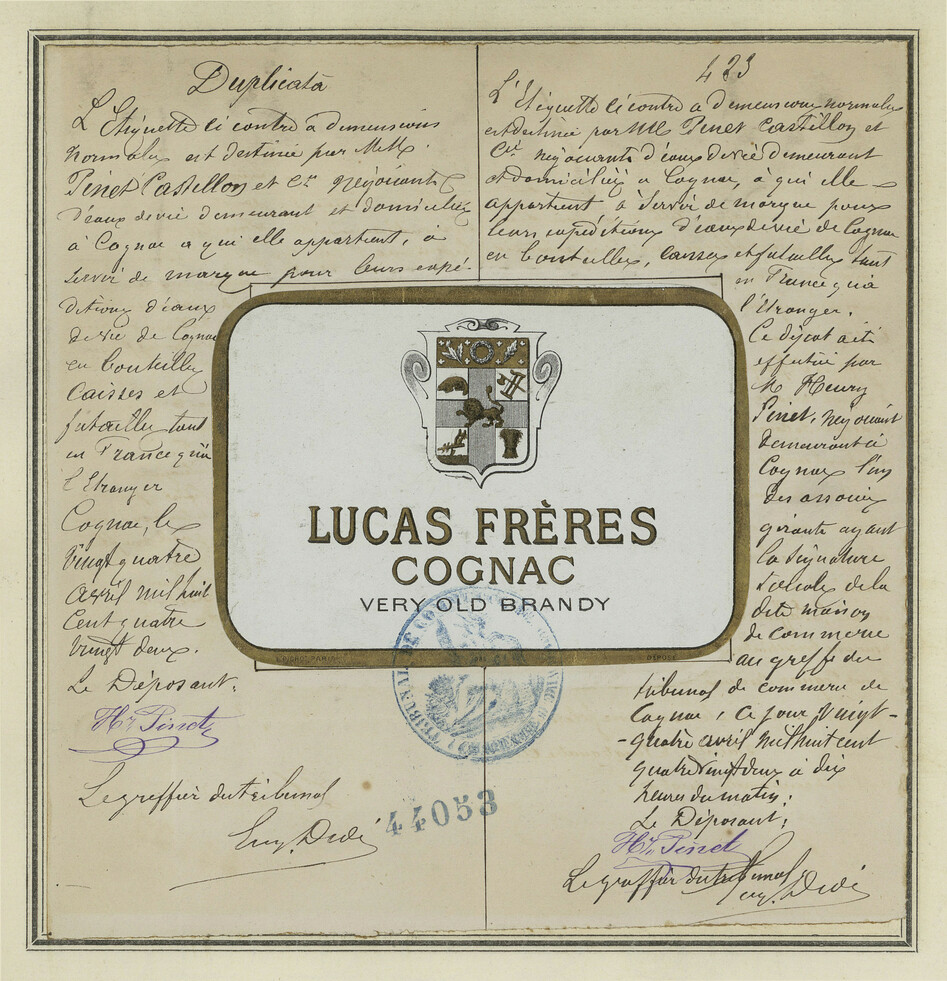 Duplicata
L'Etiquette ci contre a dimensions
normales est destinée par M.M.
Pinet Castillon et Cie Négociants
d'eaux de vie demeurant et domiciliés
à Cognac a qui elle appartient, à
servir de marque pour leurs expé-
ditions d'eaux
de vie de Cognac
en bouteilles
caisses et
futailles tant
en France qu'à
l'Etranger
Cognac, le
vingt quatre
avril mil huit
cent quatre
vingt deux.
Le Déposant:
Hry Pinet
Le greffier du tribunal
Eug. Dedé
423
L'Etiquette ci contre a dimensions normales
est destinée par MM Pinet Castillon et
Cie négociants d'eaux de vie demeurant
et domiciliés a Cognac, a qui elle
appartient à servir de marque pour
leurs expéditions d'eaux de vie de Cognac
en bouteilles, caisses et futailles tant
en France qu'à
l'Etranger.
Ce dépôt a été
effectué par
M Henry
Pinet, négociant
demeurant à
Cognac l'un
des associés
gérants ayant
la signature
sociale de la
dite maison
de commerce
au greffe du
tribunal de commerce de
Cognac, ce jour vingt-
-quatre avril mil huit cent
quatre vingt deux à dix
heures du matin.
Le Déposant:
Hry Pinet
Le greffier du tribunal
Eug. Dedé
LUCAS FRÈRES
COGNAC
VERY OLD BRANDY
DÉPOSÉ
44053